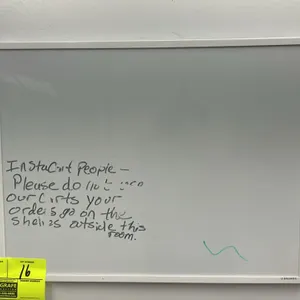 InstaCart People -
Please do not
our Carts your
orders go on the
shelves outside this
room.
16
GRAFE